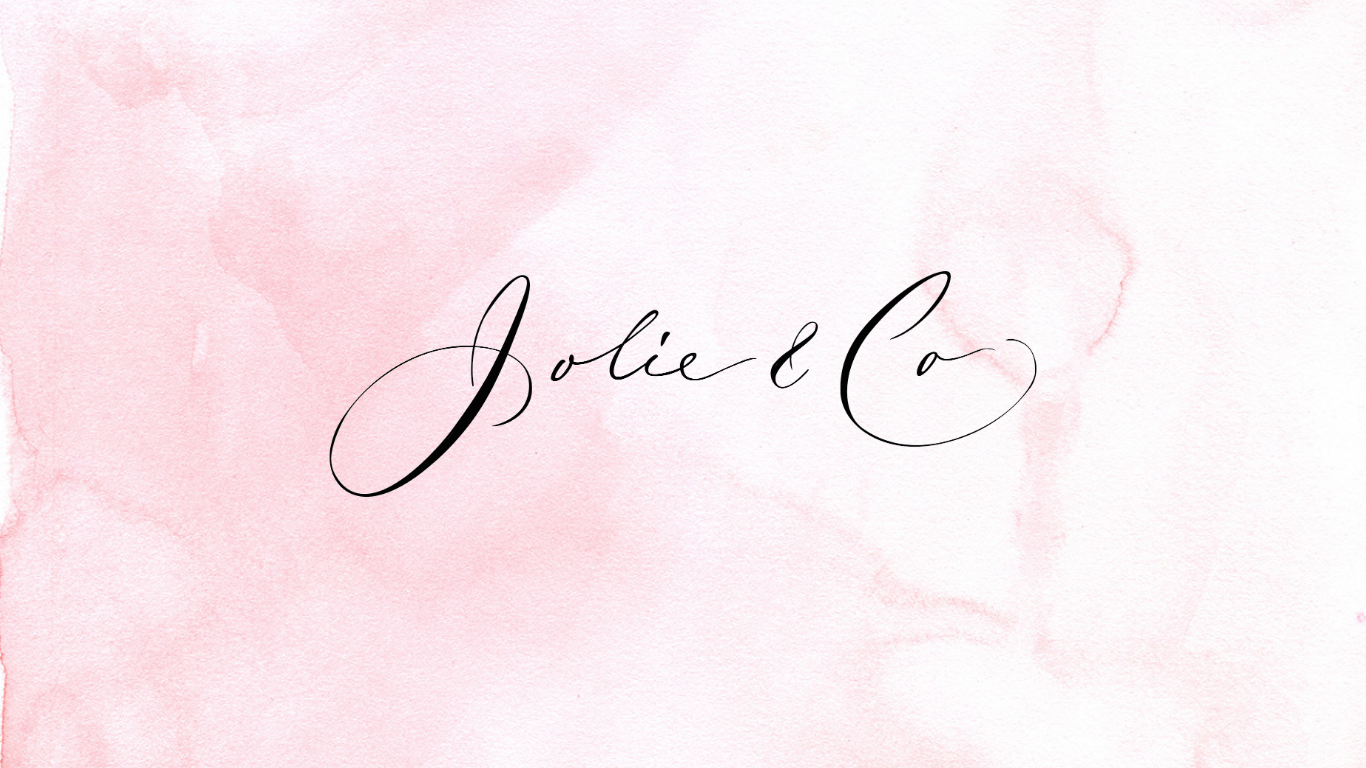 Jolie & Co